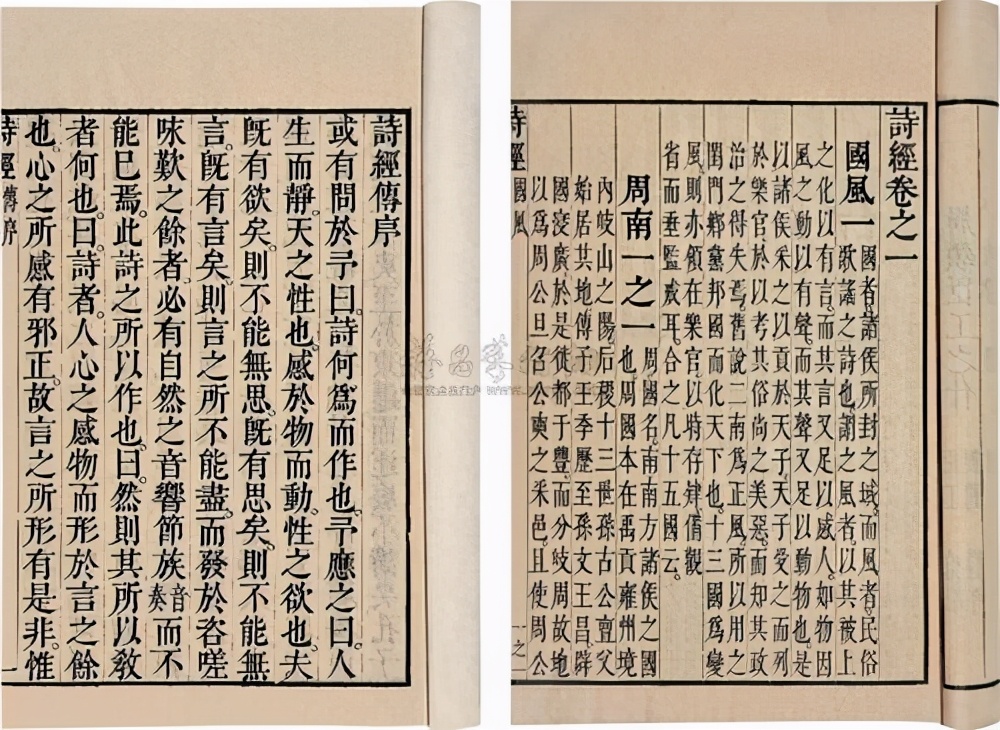 詩經傳序
或有問於予曰。詩何爲而作也。予應之曰。人
生而靜。天之性也。感於物而動。性之欲也。夫
旣有欲矣。則不能無思。旣有思矣。則不能無
言。旣有言矣。則言之所不能盡。而發於咨嗟
咏歎之餘者。必有自然之音響節族音奏而不
能已焉。此詩之所以作也。曰。然則其所以教
者何也。曰。詩者。人心之感物而形於言之餘
也。心之所感有邪正。故言之所形有是非。惟
詩經 傳序 一
詩經卷之一
國風一 國者。諸侯所封之域。而風者。民俗
歌謠之詩也。謂之風者。以其被上
之化以有言。而其言又足以感人。如物因
風之動以有聲。而其聲又足以動物也。是
以諸侯采之以貢於天子。天子受之而列
於樂官。於以考其俗尚之美惡。而知其政
治之得失焉。舊說二南爲正風。所以用之
閨門鄉黨邦國而化天下也。十三國爲變
風。則亦領在樂官。以時存肄。備觀
省而垂監戒耳。合之凡十五國云。
周南一之一 周國名。南南方諸侯之國
也。周國本在禹貢雍州境
內岐山之陽。后稷十三世孫古公亶父
始居其地。傳子王季歷至孫文王昌。辟
國寖廣。於是徙都于豐。而分岐周故地
以爲周公旦召公奭之采邑。且使周公
詩經 國風 一之一